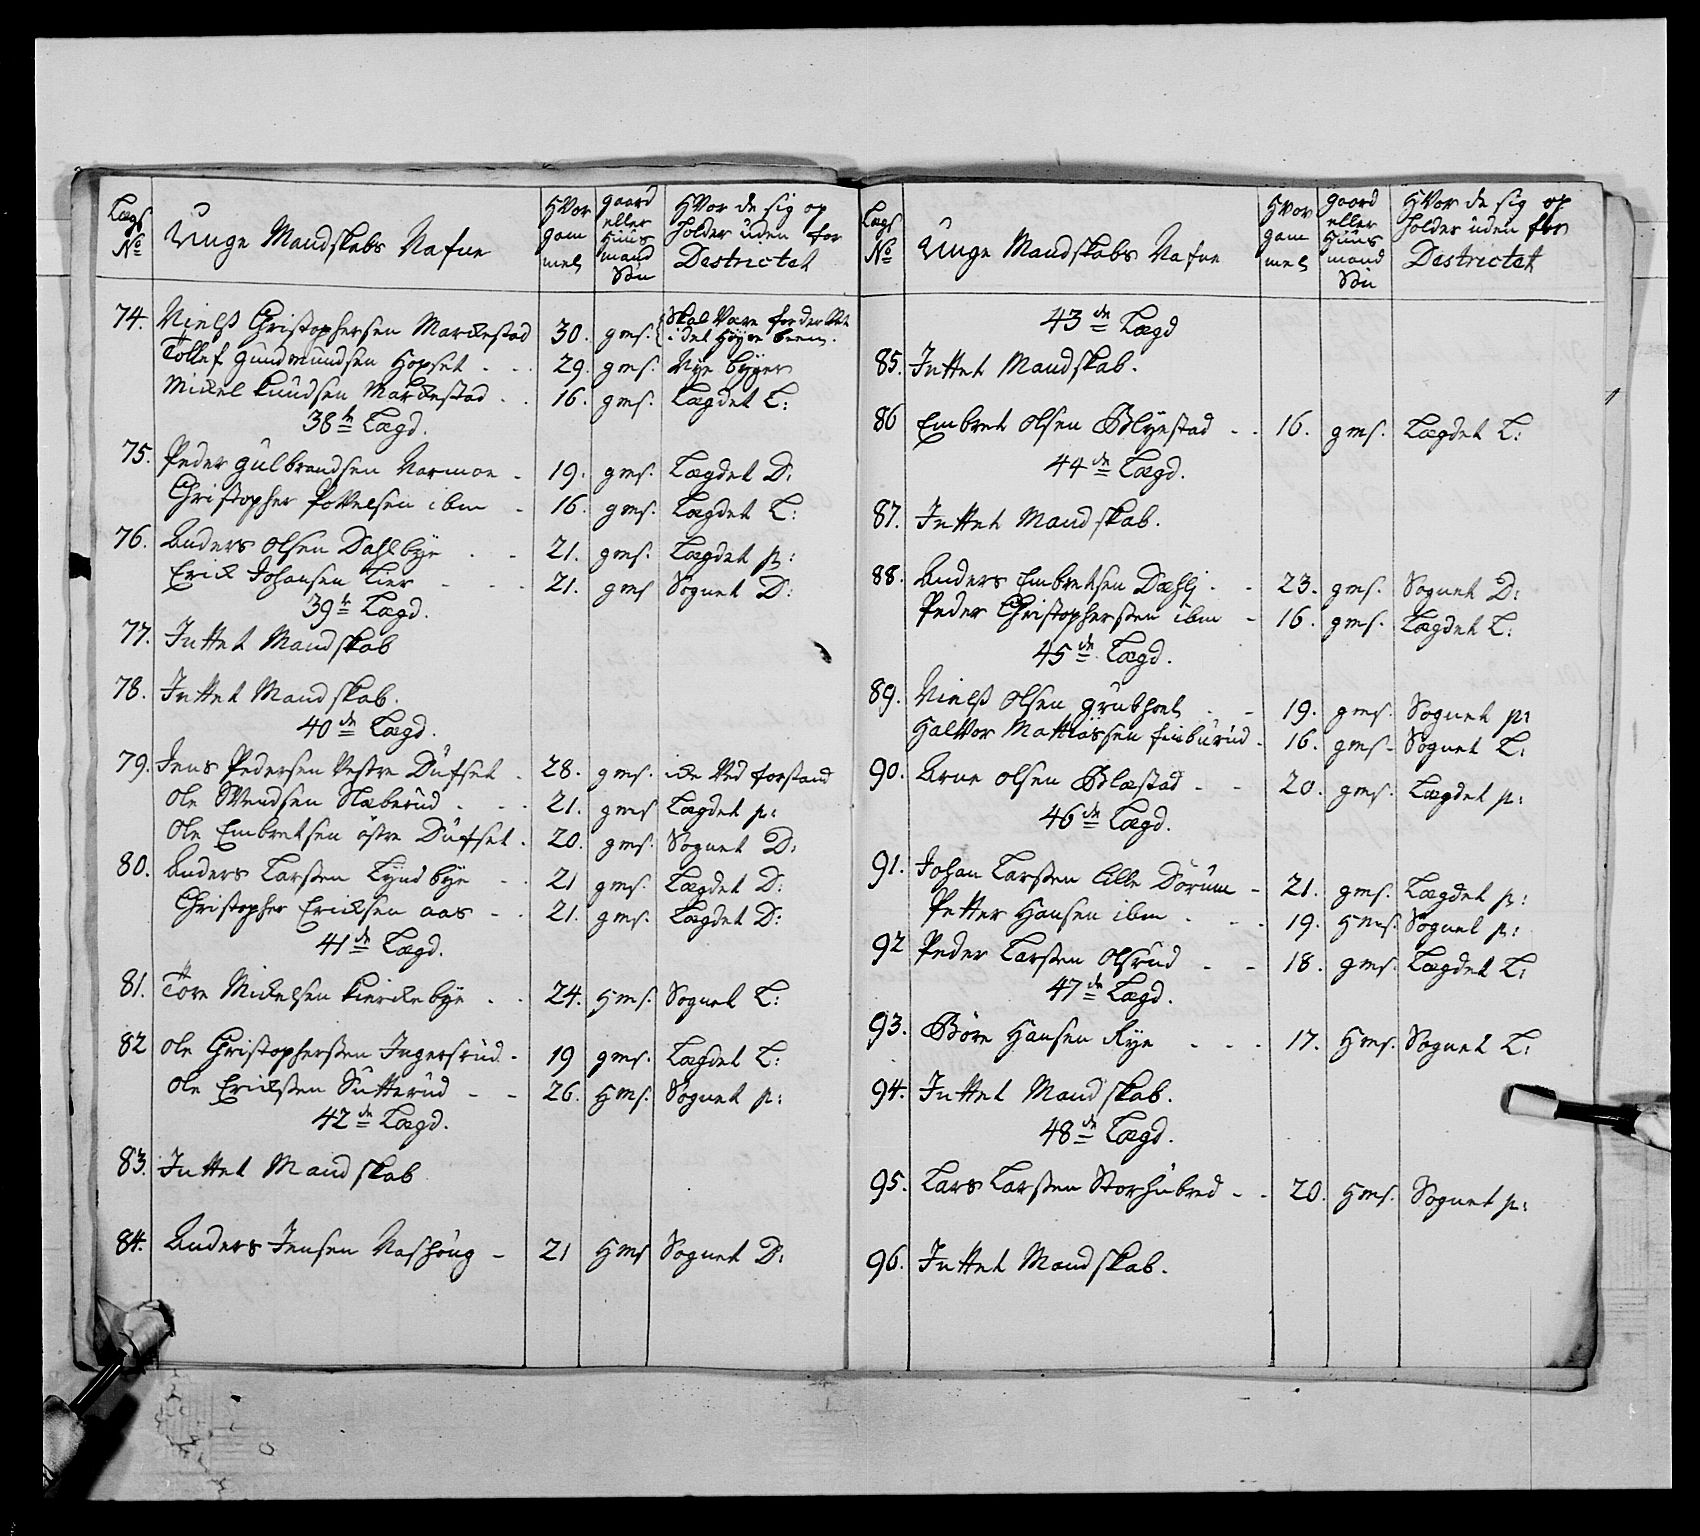 Lægs No
Unge Mandskabs Nafne
Hvor gammel
gaard eller Huusmand Søn
Hvor de sig opholder uden for Destrictet
74. Nielß Christophersen Markestad 30. gms. Skal Være fordervet i det Høyre been.
Tollef Gundmundsen Hopset 29. gms. Nye byger
Mickel Knudsen Markestad 16. gms. Lægdet L:
38te Lægd.
75. Peder Gulbrandsen Narmoe 19. gms. Lægdet D:
Christopher Povelsen ibm 16. gms. Lægdet L:
76. Anders Olsen Dahlbye 21. gms. Lægdet p:
Erick Johansen Lier 21. gms Sognet D:
39te Lægd.
77. Inttet Mandskab
78. Inttet Mandskab.
40de Lægd.
79. Jens Pedersen Vestre Düfset 28. gms. icke Ved forstand
Ole Svendsen Næberüd 21. gms Lægdet p:
Ole Embretsen östre Düfset 20. gms. Sognet D:
80. Anders Larsen Lyndbye 21 gms. Lægdet D:
Christopher Ericksen aas 21. gms. Lægdet D:
41de Lægd.
81. Tore Mickelsen Kierckebye 24. Hms. Sognet L:
82 Ole Christophersen Ingersrüd 19 gms. Lægdet L:
Ole Ericksen Sütterüd 26. Hms. Sognet p:
42de Lægd.
83. Inttet Mandskab
84. Anders Jensen Nashoug 21 Hms Sognet D:
Lægs No
Unge Mandskabs Nafne
Hvor gammel
gaard eller Huusmand Søn
Hvor de sig opholder uden for Destrictet
43de Lægd
85. Inttet Mandskab.
86 Embret Olsen Blyestad 16. gms. Lægdet L:
44de Lægd.
87. Inttet Mandskab.
88. Anders Embretsen Dæhlj 23. gms. Sognet D:
Peder Christophersen ibm 16. gms. Lægdet L:
45de Lægd.
89. Nielß Olsen Grubhoel 19. gms. Sognet p:
Halvor Mathiassen finbürüd 16. gms. Sognet L:
90. Arne Olsen Blæstad 20. gms. Lægdet p:
46de Lægd.
91. Johan Larsen lille Dörüm 21. gms. Lægdet p:
Petter Hansen ibm 19. Hms. Sognet p:
92 Peder Larsen Olsrüd 18. gms. Lægdet L:
47de Lægd.
93. Böre Hansen Rye 17. Hms. Sognet L:
94. Inttet Mandskab.
48de Lægd.
95. Lars Larsen Storhübred 20. Hms. Sognet p:
96. Inttet Mandskab.